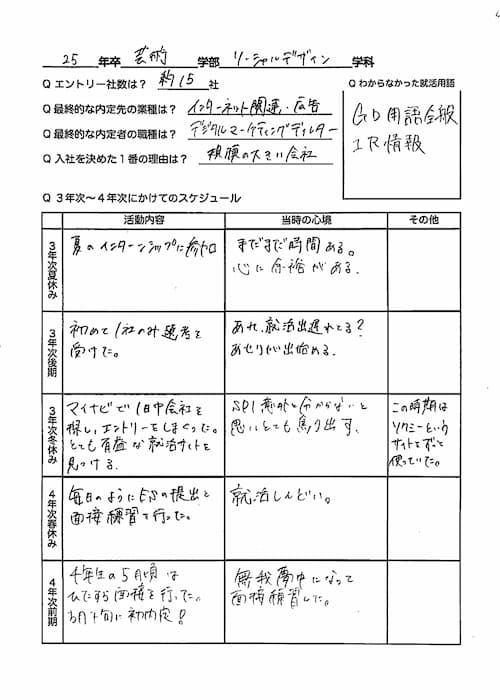 25 年卒 芸術 学部 ソーシャルデザイン 学科
Q エントリー社数は? 約15 社
Q 最終的な内定先の業種は? インターネット関連・広告
Q 最終的な内定者の職種は? デジタルマーケティングディレクター
Q 入社を決めた1番の理由は? 規模の大きい会社
Q わからなかった就活用語
GD用語全般
IR情報
Q 3年次~4年次にかけてのスケジュール
活動内容 当時の心境 その他
3年次夏休み
夏のインターンシップに参加
まだまだ時間ある。
心に余裕がある。
3年次後期
初めて1社のみ選考を
受けた。
あれ、就活出遅れてる?
あせりが出始める。
3年次冬休み
マイナビで1日中会社を
探し、エントリーをしまくった。
とても有益な就活サイトを
見つける。
SPI意外と分からないと
思いとても焦り出す。
この時期は
ソクミーという
サイトをずっと
使っていた。
4年次春休み
毎日のようにESの提出と
面接練習を行った。
就活しんどい。
4年次前期
4年生の5月頃は
ひたすら面接を行った。
月下旬に初内定!
無我夢中になって
面接練習した。